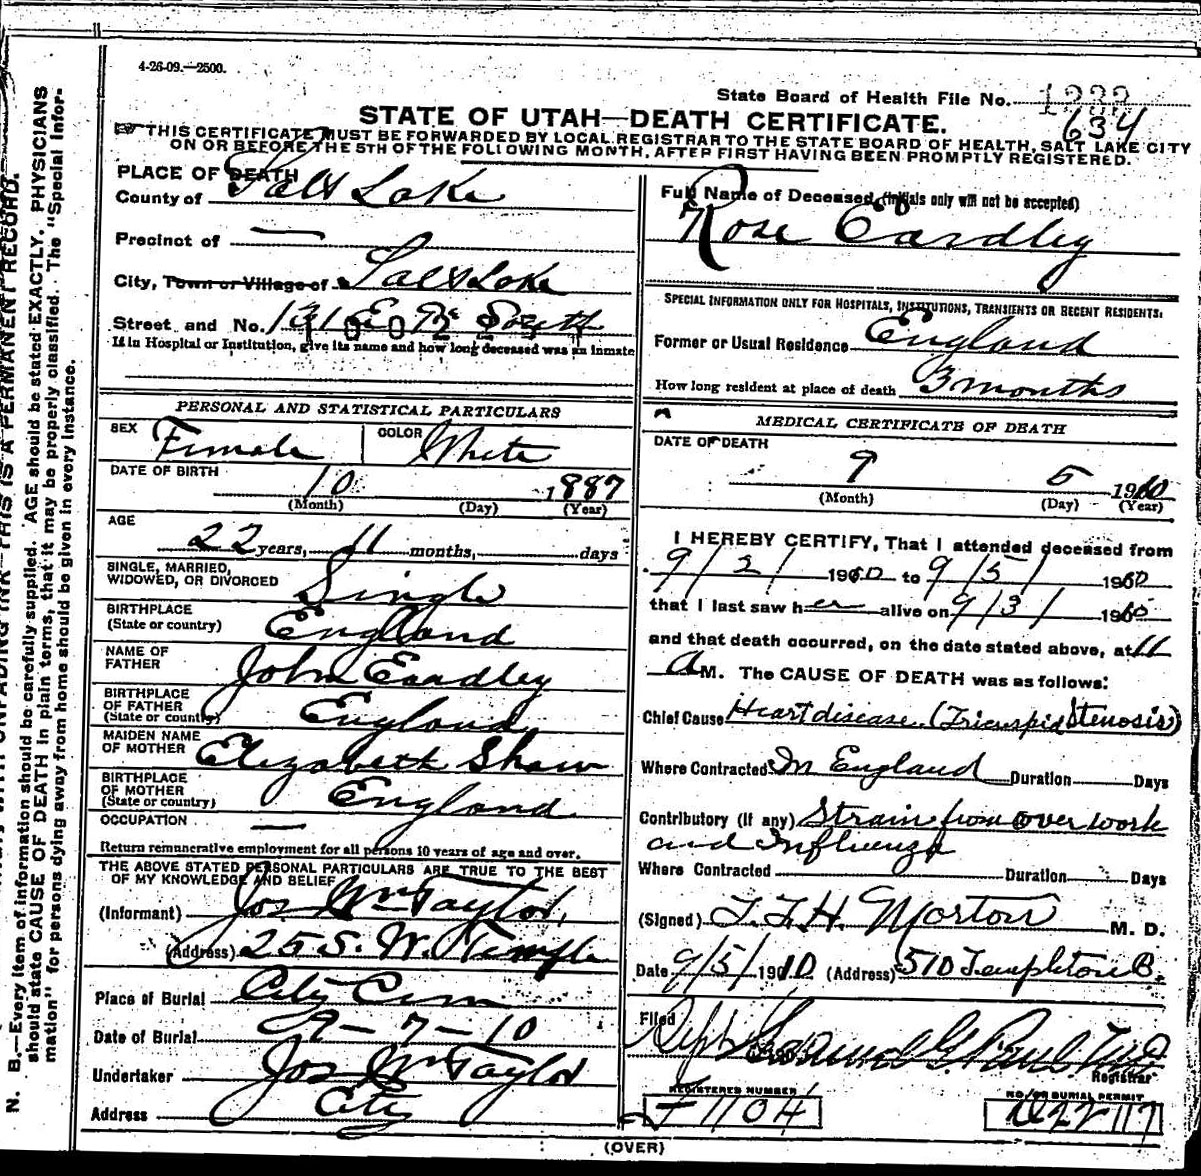 4-26-09.—2500.
State Board of Health File No. 1232
634
STATE OF UTAH—DEATH CERTIFICATE.
THIS CERTIFICATE MUST BE FORWARDED BY LOCAL REGISTRAR TO THE STATE BOARD OF HEALTH, SALT LAKE CITY
ON OR BEFORE THE 5TH OF THE FOLLOWING MONTH, AFTER FIRST HAVING BEEN PROMPTLY REGISTERED.
PLACE OF DEATH
County of Salt Lake
Precinct of —
City, Town or Village of Salt Lake
Street and No. 131 E South
If in Hospital or Institution, give its name and how long deceased was an inmate
PERSONAL AND STATISTICAL PARTICULARS
SEX Female COLOR White
DATE OF BIRTH 10 1887
(Month) (Day) (Year)
AGE
22 years, 11 months, days
SINGLE, MARRIED,
WIDOWED, OR DIVORCED Single
BIRTHPLACE
(State or country) England
NAME OF
FATHER John Eardley
BIRTHPLACE
OF FATHER
(State or country) England
MAIDEN NAME
OF MOTHER Elizabeth Shaw
BIRTHPLACE
OF MOTHER
(State or country) England
OCCUPATION —
Return remunerative employment for all persons 10 years of age and over.
THE ABOVE STATED PERSONAL PARTICULARS ARE TRUE TO THE BEST
OF MY KNOWLEDGE AND BELIEF
(Informant) Jos Wm Taylor,
(Address) 25 S. W. Temple
Place of Burial City Cem
Date of Burial 9-7-10
Undertaker Jos Wm Taylor
Address City
Full Name of Deceased (initials only will not be accepted)
Rose Eardley
SPECIAL INFORMATION ONLY FOR HOSPITALS, INSTITUTIONS, TRANSIENTS OR RECENT RESIDENTS:
Former or Usual Residence England
How long resident at place of death 3 months
MEDICAL CERTIFICATE OF DEATH
DATE OF DEATH
9 5 1910
(Month) (Day) (Year)
I HEREBY CERTIFY, That I attended deceased from
9/2/ 1910 to 9/5/ 1910
that I last saw her alive on 9/3/ 1910
and that death occurred, on the date stated above, at 11
A M. The CAUSE OF DEATH was as follows:
Chief Cause Heart disease (Tricuspid Stenosis)
Where Contracted In England Duration Days
Contributory (if any) Strain from over work
and Influenza
Where Contracted Duration Days
(Signed) T. F. H. Morton M. D.
Date 9/5/1910 (Address) 510 Templeton B.
Filed
Samuel G. Paul
Registrar
REGISTERED NUMBER
F 1104
NO. OR BURIAL PERMIT
(OVER)
N. B.—Every item of information should be carefully supplied. AGE should be stated EXACTLY. PHYSICIANS
should state CAUSE OF DEATH in plain terms, that it may be properly classified. The "Special Infor-
mation" for persons dying away from home should be given in every instance.
UNFADING INK—THIS IS A PERMANENT RECORD.